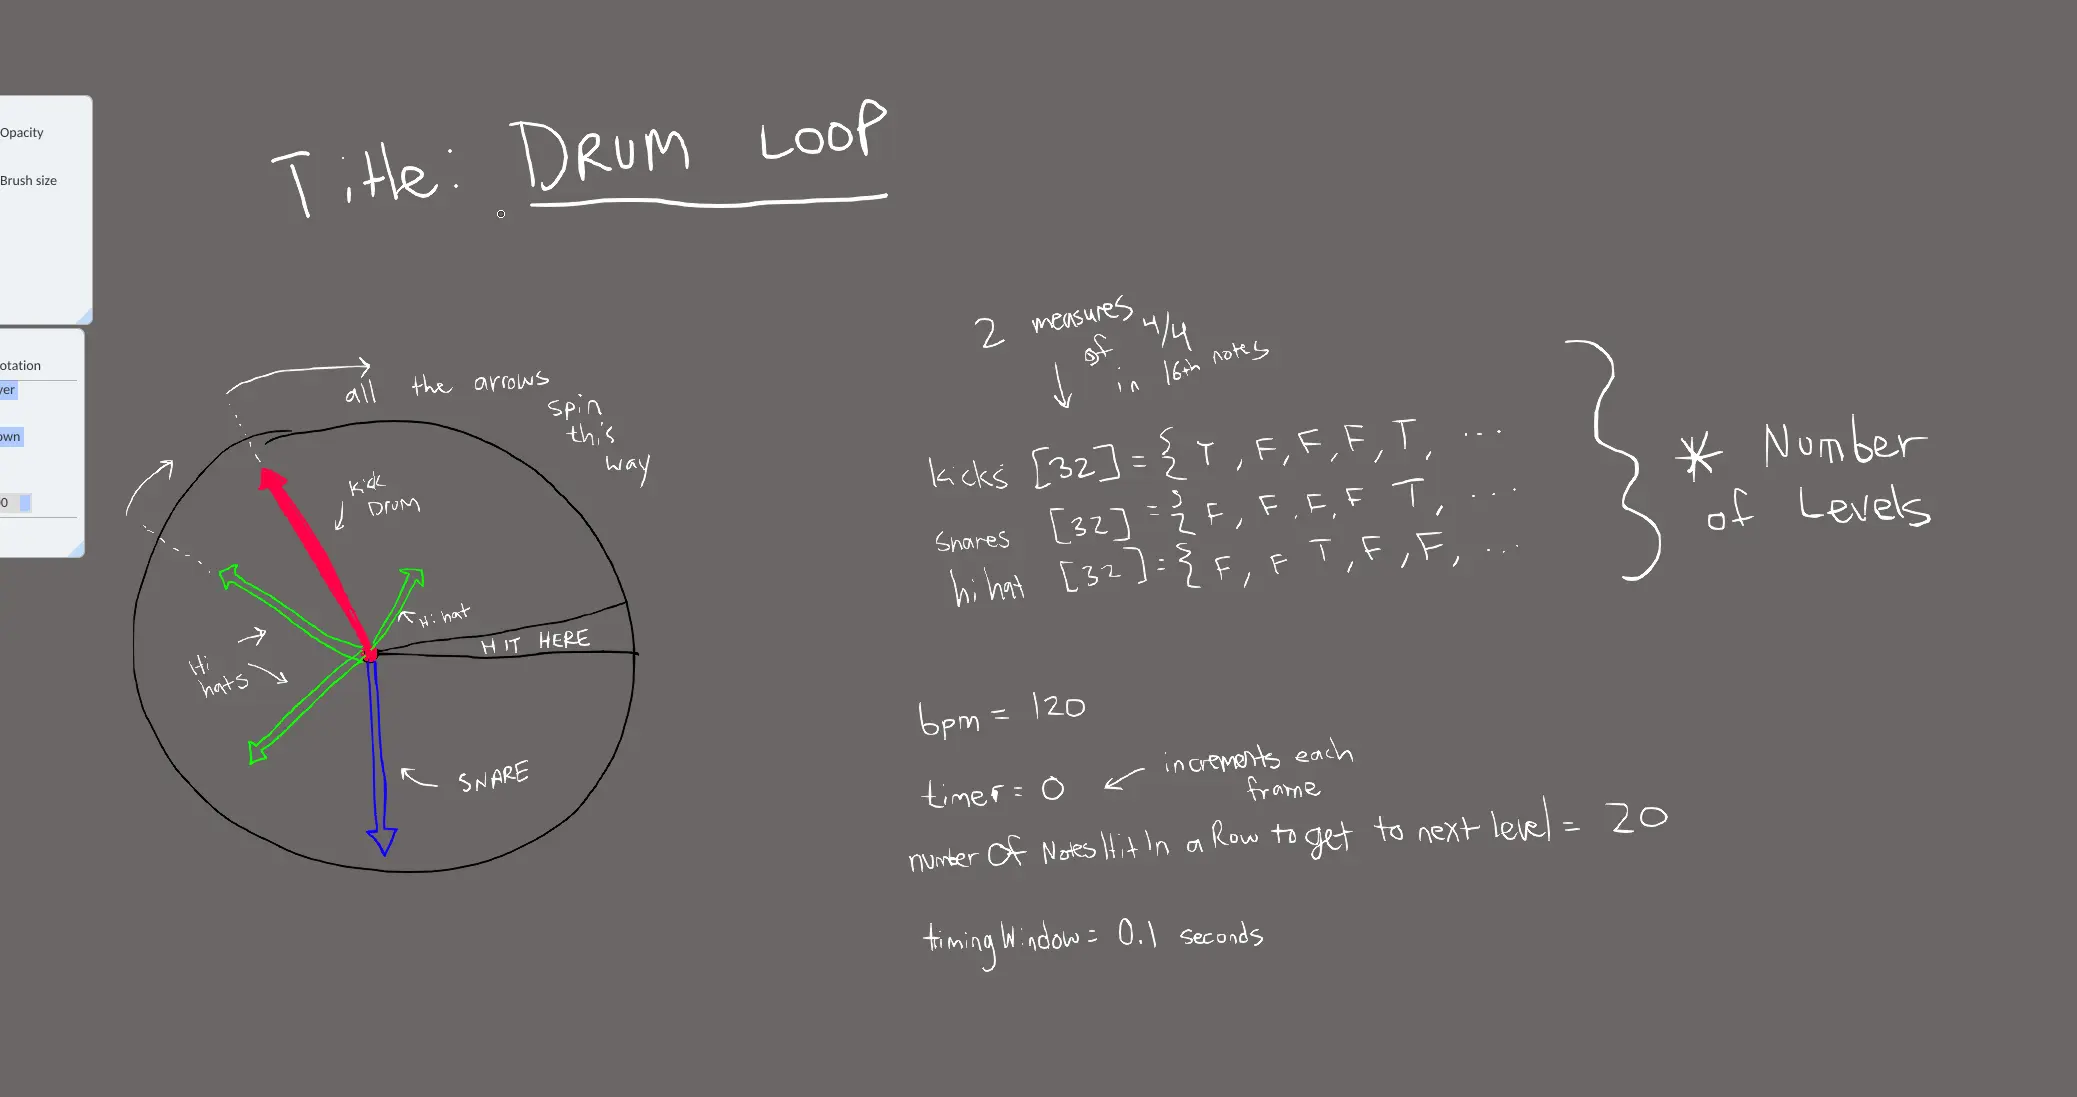 Opacity
Brush size
otation
ver
own
00
Title: DRUM LOOP
all the arrows
spin
this
way
Kick
DRUM
Hi hat
HIT HERE
Hi
hats
SNARE
2 measures
of 4/4
in 16th notes
kicks [32] = { T, F, F, F, T, ...
snares [32] = { F, F, F, F T, ...
hi hat [32] = { F, F T, F, F, ...
* Number
of Levels
bpm = 120
timer = 0
increments each
frame
number Of Notes Hit In a Row to get to next level = 20
timing Window = 0.1 seconds